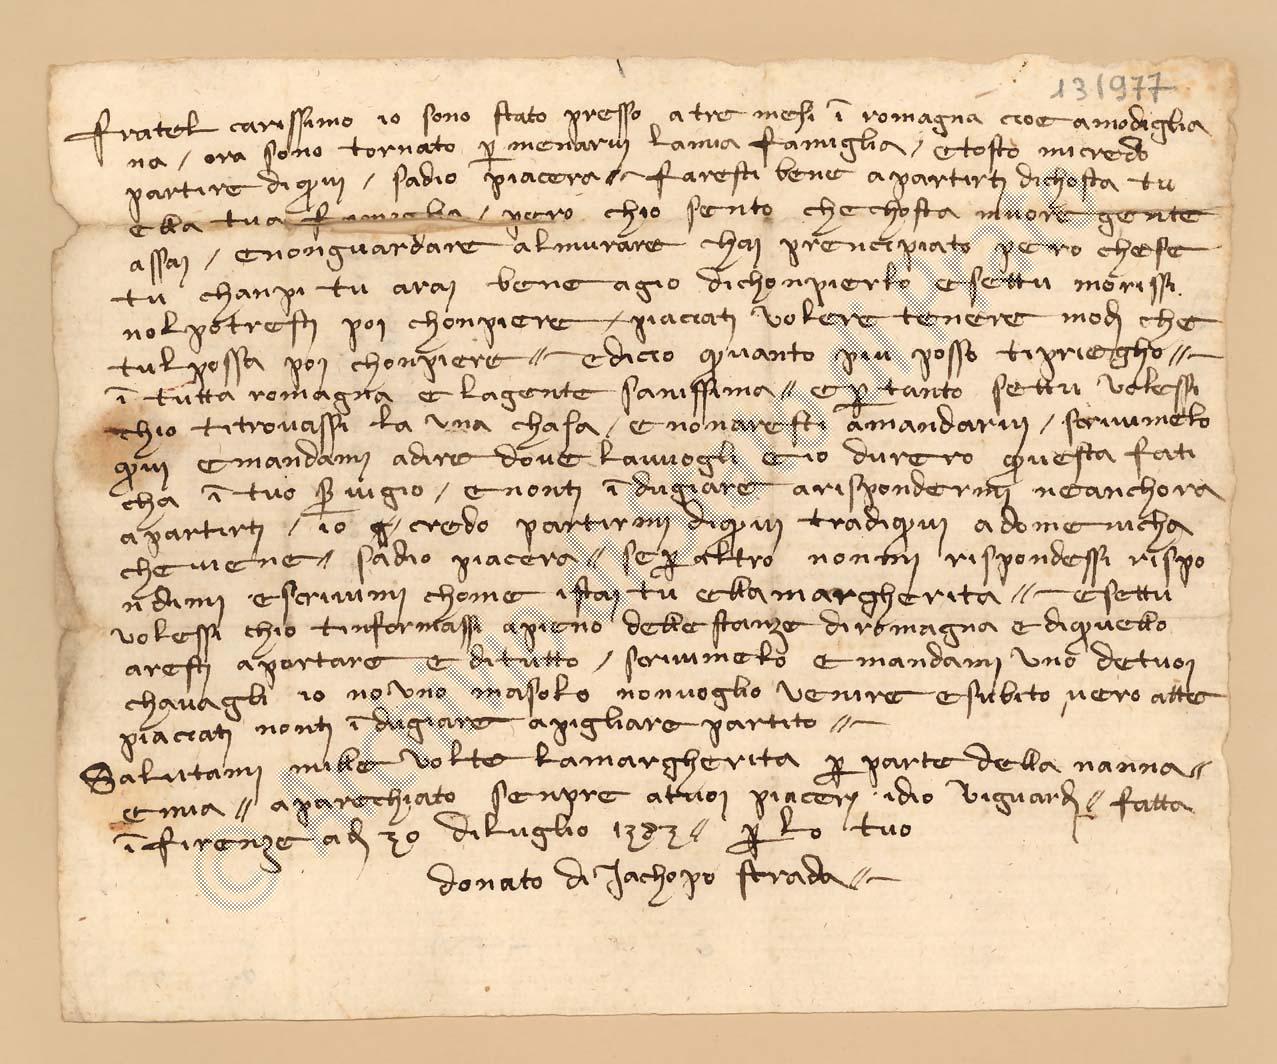 131977
Fratel carissimo io sono stato presso a tre mesi ī romagna cioe a modiglia
na / ora sono tornato ꝑ menarvi la mia famiglia / e tosto mi credo
partire di qui / sadio piacera // faresti bene a partirti di chosta tu
ella tua famiglia / pero chio sento che chosta muore gente
assai / e non guardare al murare chai prencipiato pero che se
tu chanpi tu arai bene agio di chonpierlo e settu morissi
nol potresti poi chonpiere / piacciati volere tenere modi che
tul possa poi chonpiere // e di cio quanto piu posso ti priegho //
ī tutta romagna e la gente sanissima // e ꝑ tanto settu volessi
chio ti trovassi la una chasa / e non aresti a mandarvi / scrivimelo
qui e mandami a dire dove la vuogli e io durero questa fati
cha ī tuo ꝑvigio / e nonti ī dugiare a rispondermi ne anchora
a partirti / io credo partirmi di qui tra di qui a domenicha
che viene // sadio piacera // se ꝑ altro non mi rispondessi rispo
ndimi e scrivimi chome istai tu ella margherita // e settu
volessi chio tinformassi a pieno delle stanze di romagna e di quello
aresti a portare e di tutto / scrivimelo e mandami uno de tuoi
chavagli io no uno masolo non voglio venire e subito verro atte
piacciati nonti ī dugiare a pigliare partito //
Salutami mille volte la margherita ꝑ parte della nanna //
e mia // aparechiato senpre a tuoi piaceri idio vi guardi // fatta
ī firenze adi 30 di luglio 1383 // ꝑ lo tuo
donato di Jachopo strada //